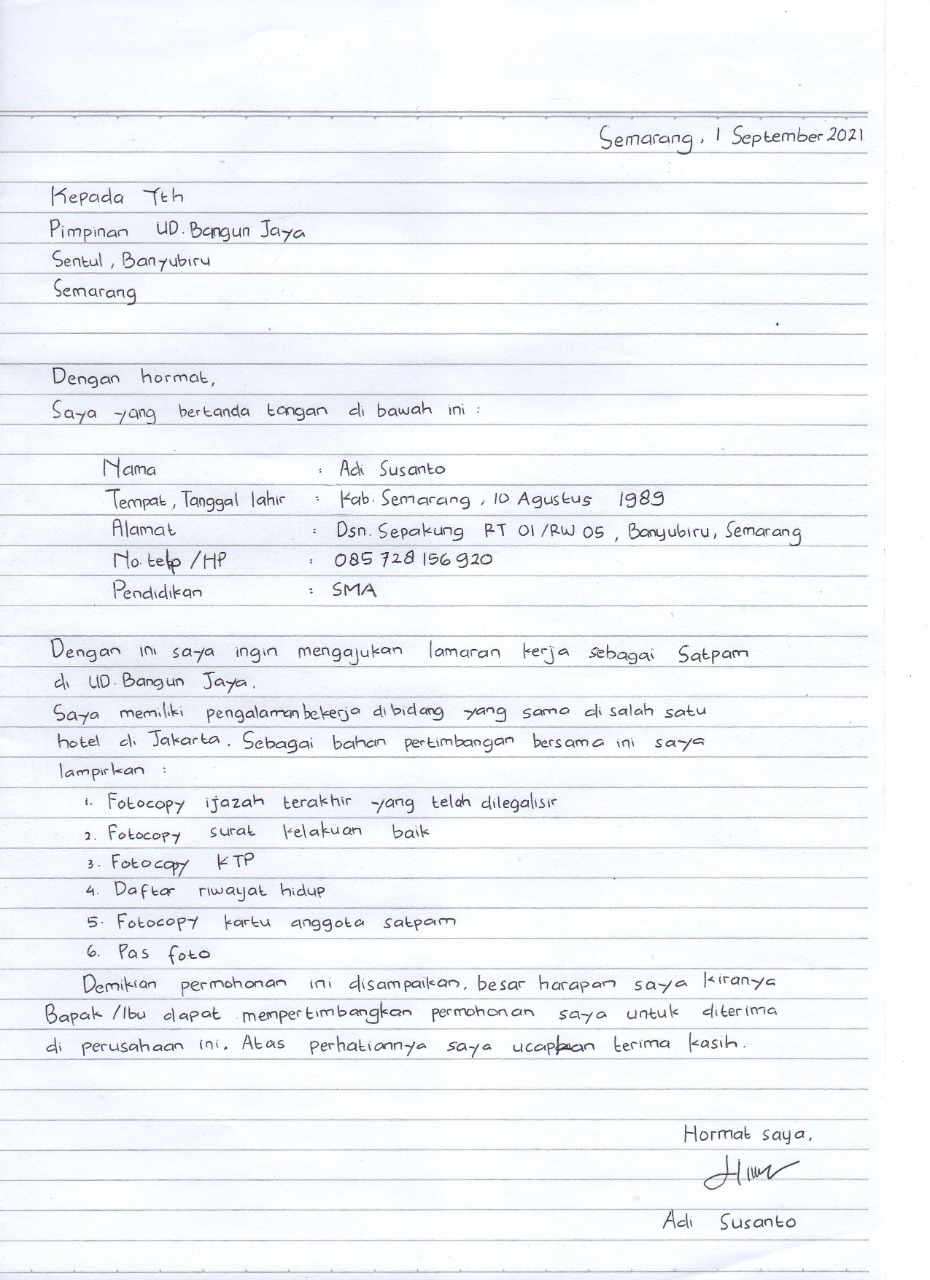 Semarang, 1 September 2021
Kepada Yth
Pimpinan UD. Bangun Jaya
Sentul, Banyubiru
Semarang
Dengan hormat,
Saya yang bertanda tangan di bawah ini :
Nama : Adi Susanto
Tempat, Tanggal lahir : Kab. Semarang, 10 Agustus 1989
Alamat : Dsn. Sepakung RT 01/RW 05, Banyubiru, Semarang
No. telp /HP : 085 728 156 920
Pendidikan : SMA
Dengan ini saya ingin mengajukan lamaran kerja sebagai Satpam
di UD. Bangun Jaya.
Saya memiliki pengalaman bekerja dibidang yang sama di salah satu
hotel di Jakarta. Sebagai bahan pertimbangan bersama ini saya
lampirkan :
1. Fotocopy ijazah terakhir yang telah dilegalisir
2. Fotocopy surat kelakuan baik
3. Fotocopy KTP
4. Daftar riwayat hidup
5. Fotocopy kartu anggota satpam
6. Pas foto
Demikian permohonan ini disampaikan. besar harapan saya kiranya
Bapak /Ibu dapat mempertimbangkan permohonan saya untuk diterima
di perusahaan ini. Atas perhatiannya saya ucapkan terima kasih.
Hormat saya,
Adi Susanto